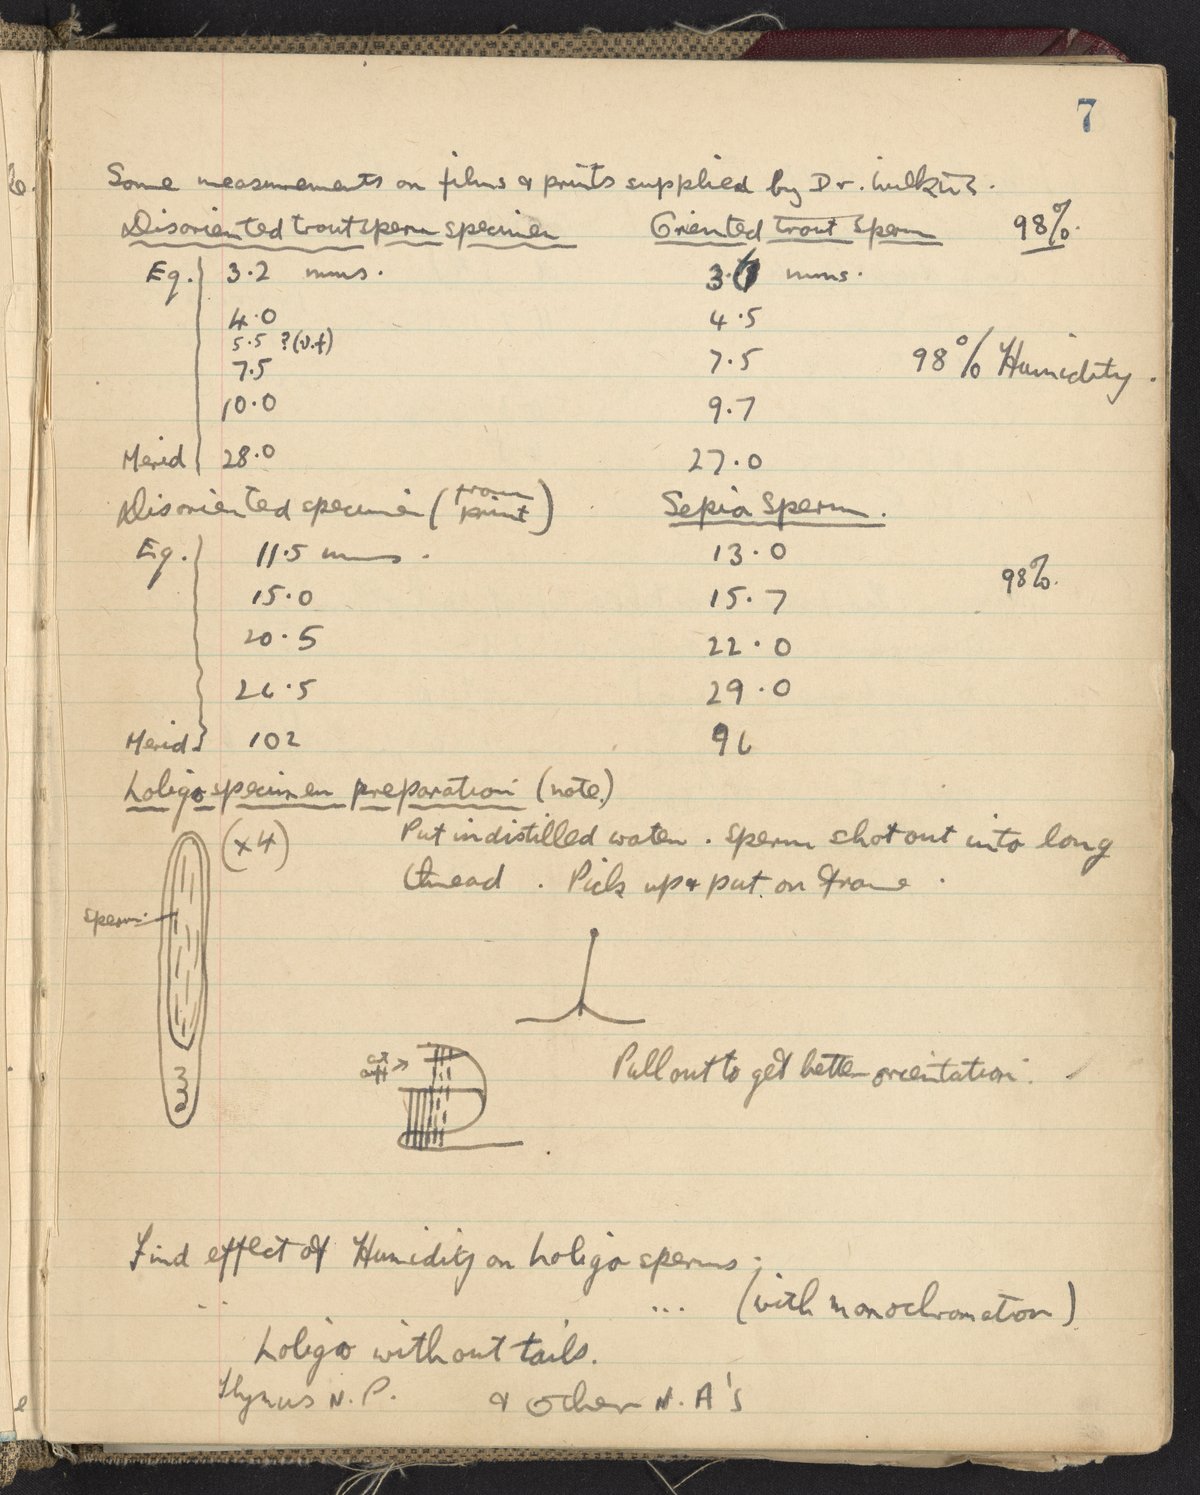 7
Some measurements on films & prints supplied by Dr. Wilkins.
Disoriented trout sperm specimen Oriented trout sperm 98%.
Eq. 3.2 mms. 3.6 mms.
4.0 4.5
5.5 ? (v.f)
7.5 7.5 98% Humidity.
10.0 9.7
Merid 28.0 27.0
Disoriented specimen (from print) Sepia Sperm.
Eq. 11.5 mms. 13.0
15.0 15.7 98%.
20.5 22.0
26.5 29.0
Merid. 102 96
Loligo specimen preparation (note)
(x4) Put in distilled water. Sperm shot out into long
thread. Pick up & put on frame.
sperm.
cut off
Pull out to get better orientation.
Find effect of Humidity on Loligo sperms.
.. ... (with monochromator)
Loligo without tails.
Thymus N.P. & other N.A's